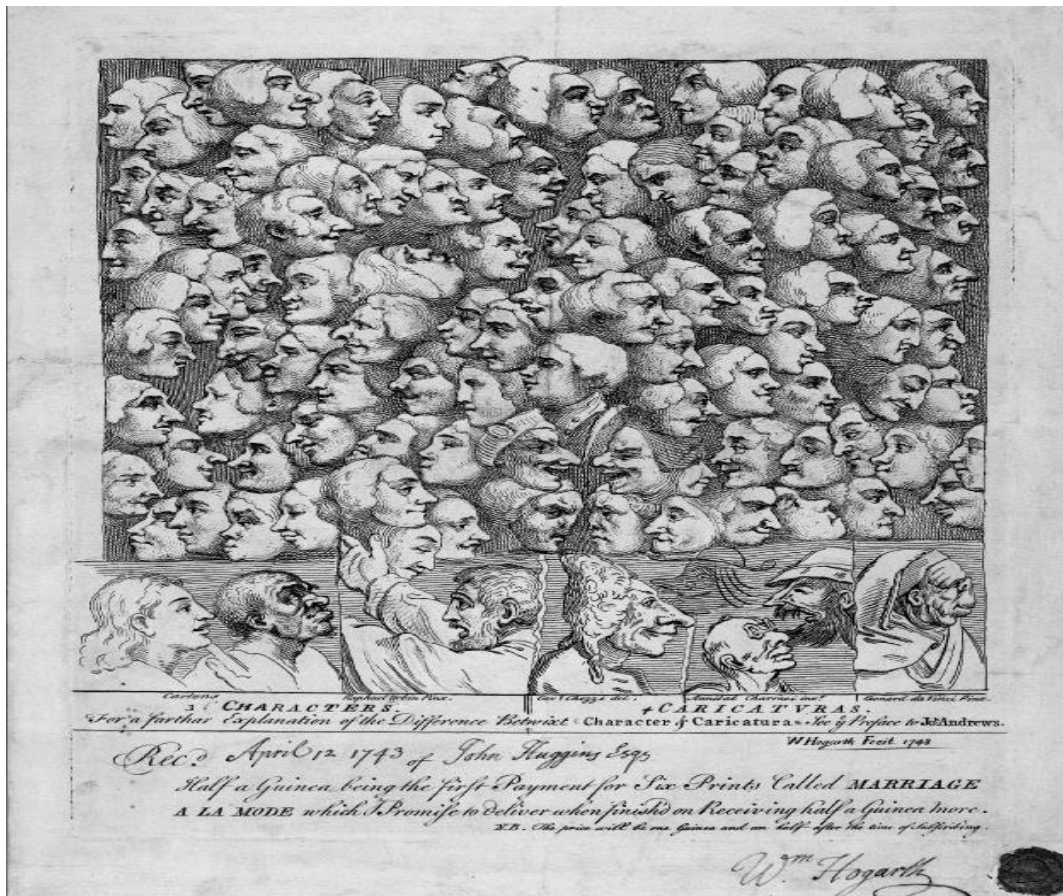 Cartons Raphael Urbin Pinx. Cavr. Chezze del. Annibal Charracc inxt. Leonard da Vinci Pinx.
3 CHARACTERS. 4 CARICATVRAS.
For a farthar Explanation of the Difference Betwixt Character & Caricatura See ye Preface to Joh. Andrews.
W Hogarth Fecit 1743
Rec.d April 12 1743 of John Huggins Esqr
Half a Guinea being the first Payment for Six Prints Called MARRIAGE
A LA MODE which I Promise to deliver when finish'd on Receiving half a Guinea more.
N.B. The price will be one Guinea and an half after the time of Subscribing.
Wm Hogarth